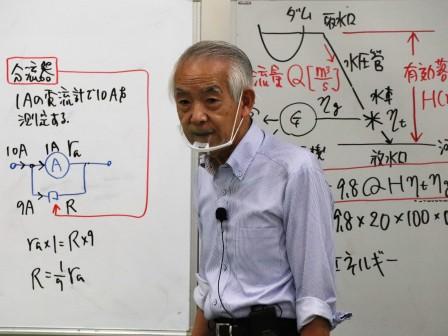 分流器
1Aの電流計で10Aを
測定する.
10A 1A ra
A
9A R
ra×1=R×9
R=1/9 ra
ダム 取水口
水圧管
流量 Q[m³/s]
有効落
H(
ηg
G
水車 ηt
放水口
9.8QHηtηg
9.8×20×100×0
エネルギー